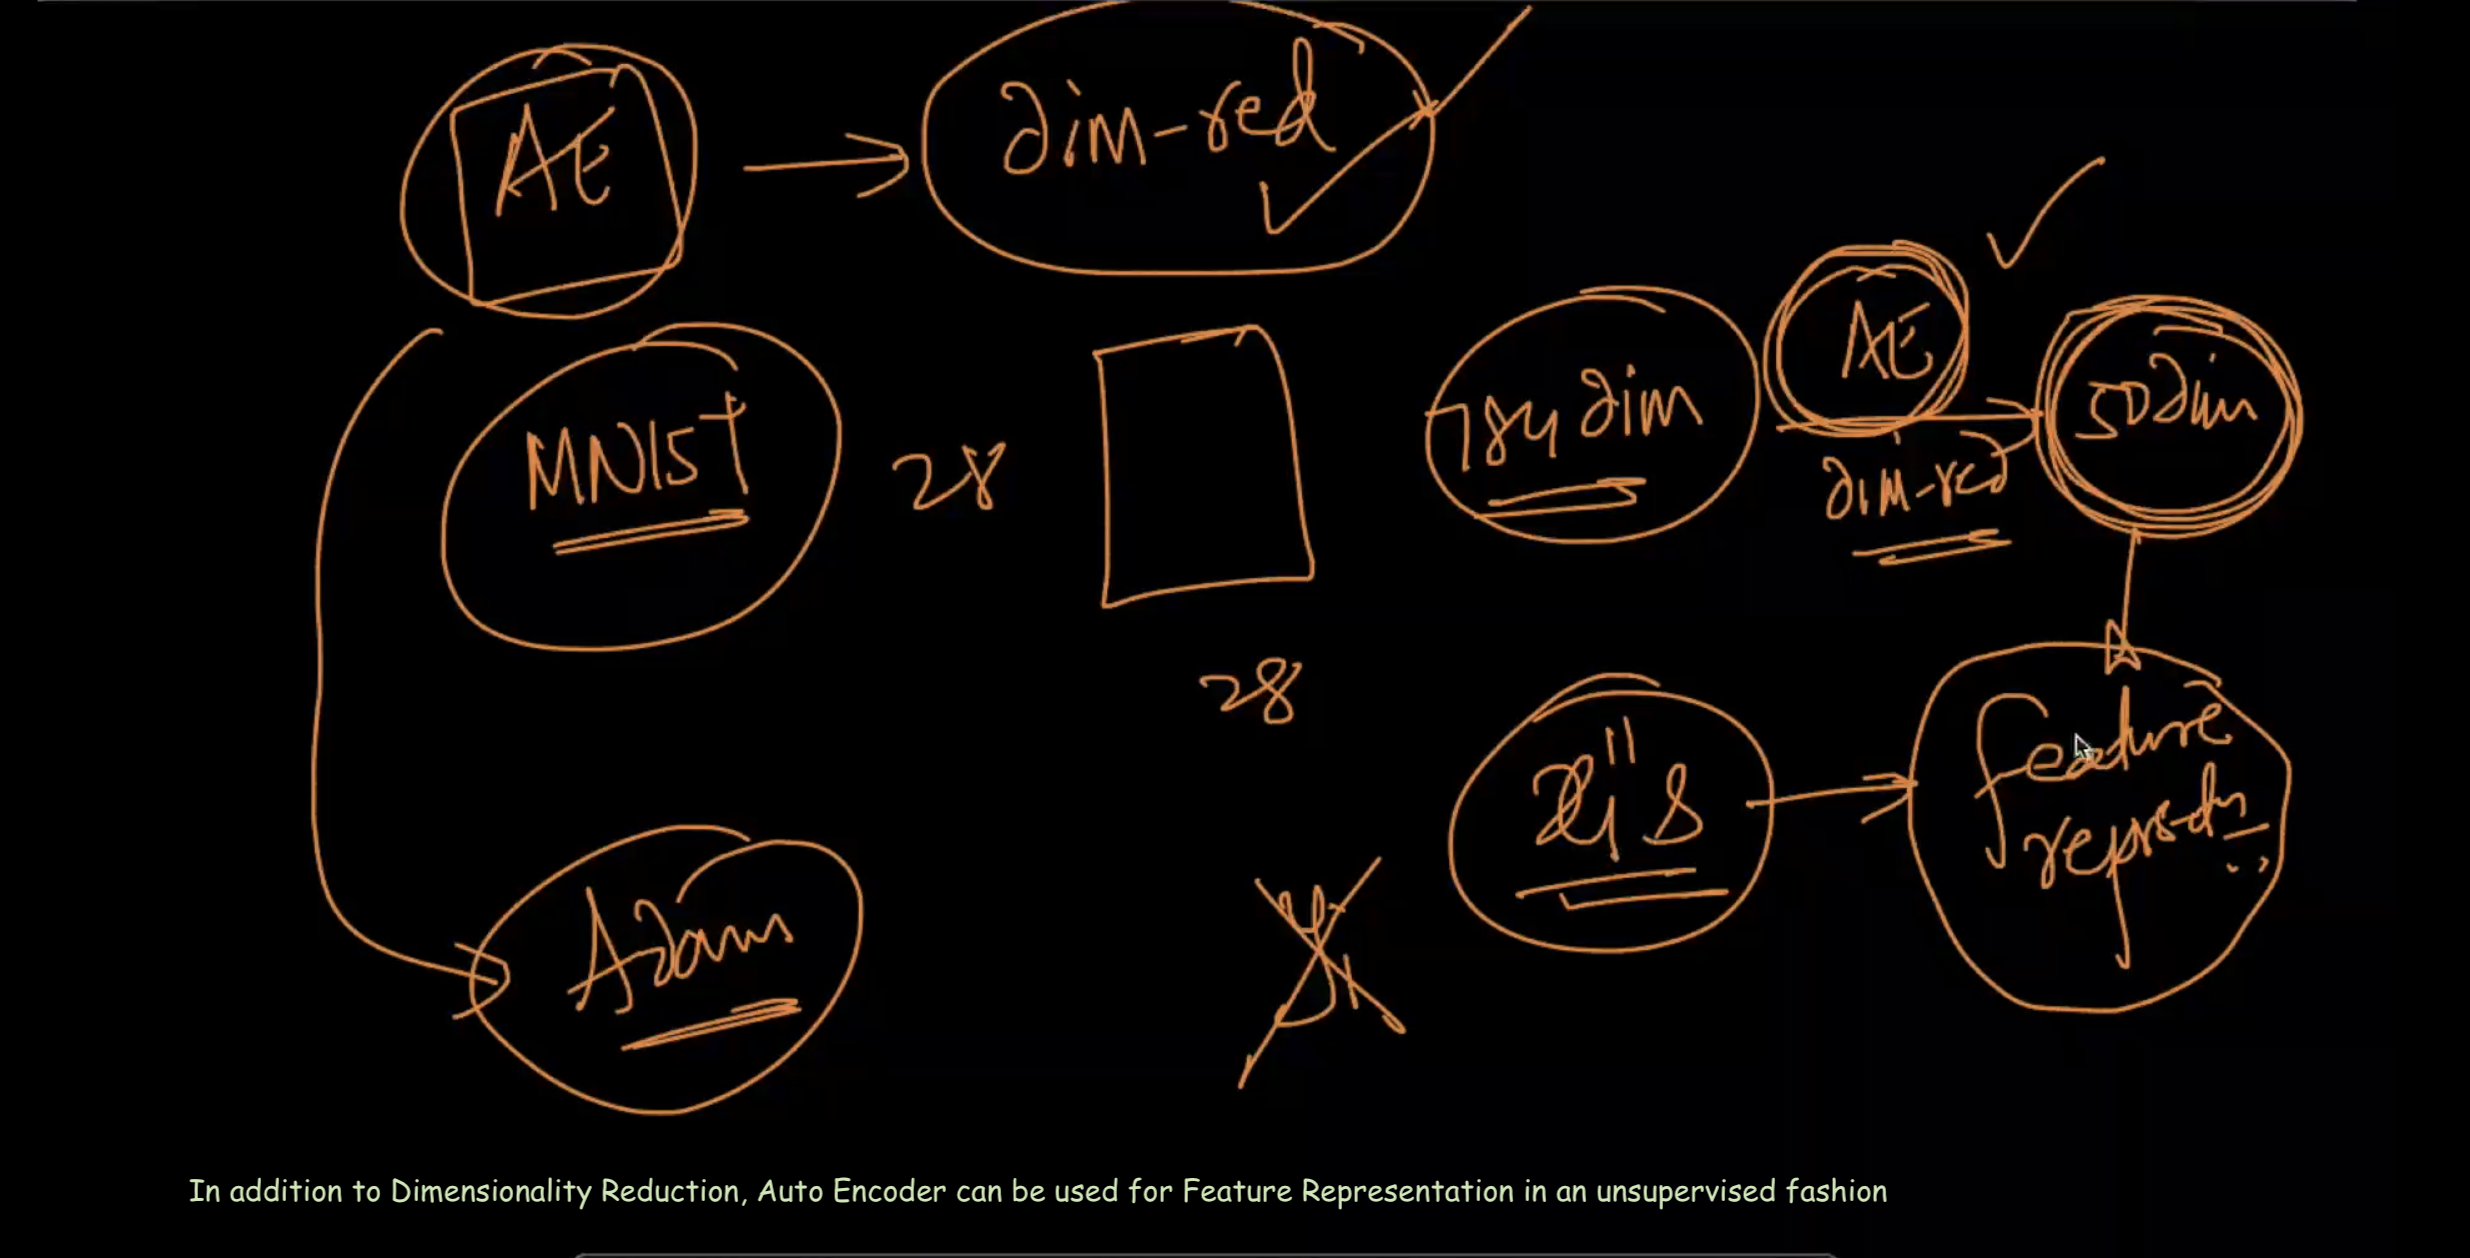 AE
dim-red
MNIST
28
28
784 dim
AE
dim-red
50 dim
Adam
yi
xi's
feature
In addition to Dimensionality Reduction, Auto Encoder can be used for Feature Representation in an unsupervised fashion